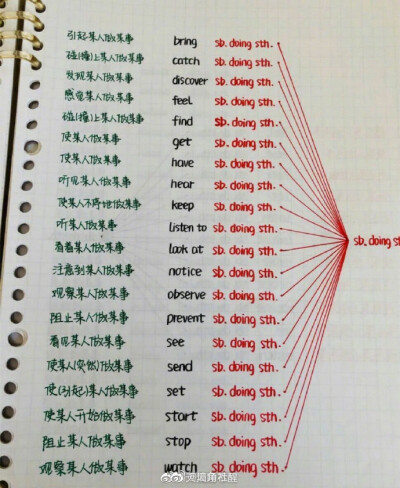 引起某人做某事 bring sb. doing sth.
碰(撞)上某人做某事 catch sb. doing sth.
发现某人做某事 discover sb. doing sth.
感觉某人做某事 feel sb. doing sth.
碰(撞)上某人做某事 find sb. doing sth.
使某人做某事 get sb. doing sth.
使某人做某事 have sb. doing sth.
听见某人做某事 hear sb. doing sth.
使某人不停地做某事 keep sb. doing sth.
听某人做某事 listen to sb. doing sth.
看着某人做某事 look at sb. doing sth.
注意到某人做某事 notice sb. doing sth.
观察某人做某事 observe sb. doing sth.
阻止某人做某事 prevent sb. doing sth.
看见某人做某事 see sb. doing sth.
使某人(突然)做某事 send sb. doing sth.
使(引起)某人做某事 set sb. doing sth.
使某人开始做某事 start sb. doing sth.
阻止某人做某事 stop sb. doing sth.
观察某人做某事 watch sb. doing sth.
sb. doing st